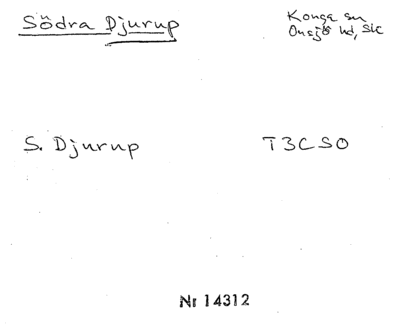 Södra Djurup
Konga sn
Onsjö hd, Sk
S. Djurup
T3CSO
Nr 14312